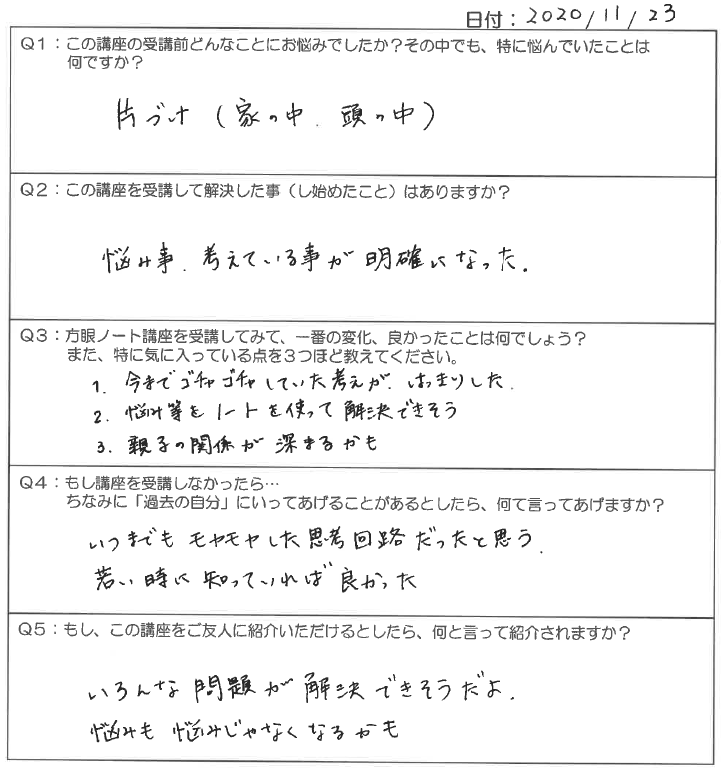 日付：2020/11/23
Q1：この講座の受講前どんなことにお悩みでしたか？その中でも、特に悩んでいたことは
何ですか？
片づけ（家の中、頭の中）
Q2：この講座を受講して解決した事（し始めたこと）はありますか？
悩み事、考えている事が明確になった。
Q3：方眼ノート講座を受講してみて、一番の変化、良かったことは何でしょう？
また、特に気に入っている点を3つほど教えてください。
1. 今までゴチャゴチャしていた考えが、はっきりした。
2. 悩み等をノートを使って解決できそう
3. 親子の関係が深まるかも
Q4：もし講座を受講しなかったら…
ちなみに「過去の自分」にいってあげることがあるとしたら、何て言ってあげますか？
いつまでもモヤモヤした思考回路だったと思う。
若い時に知っていれば良かった
Q5：もし、この講座をご友人に紹介いただけるとしたら、何と言って紹介されますか？
いろんな問題が解決できそうだよ。
悩みも悩みじゃなくなるかも